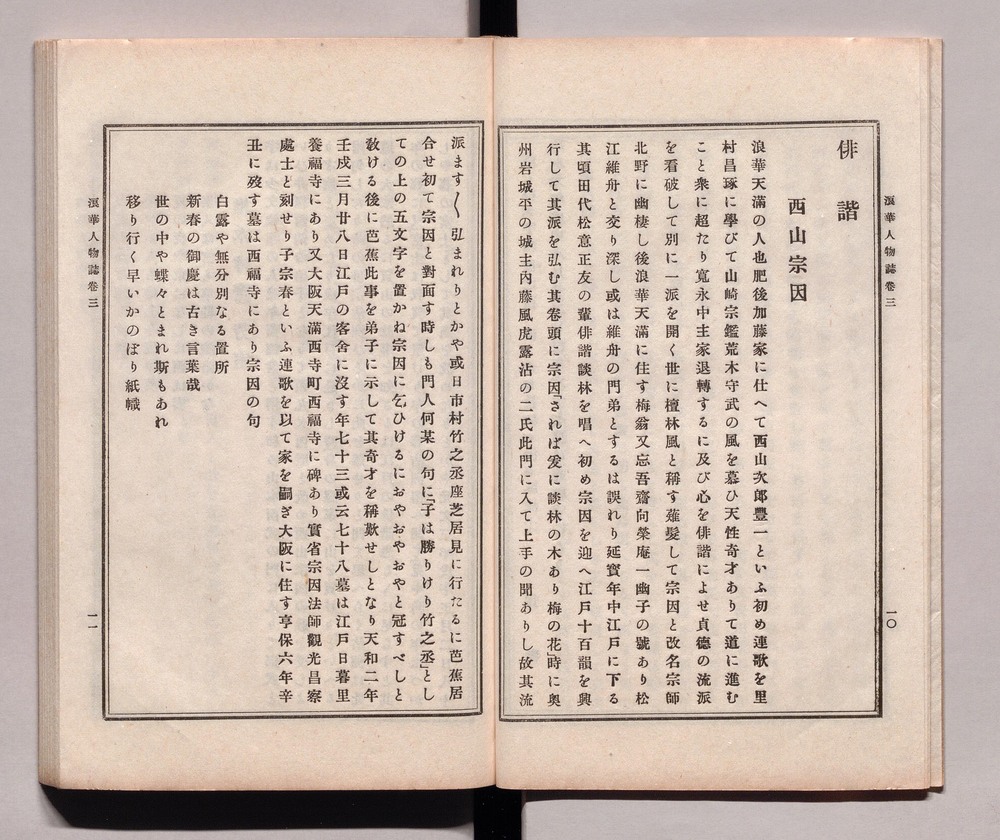 浪華人物誌卷三
一〇
俳諧
西山宗因
浪華天滿の人也肥後加藤家に仕へて西山次郎豐一といふ初め連歌を里
村昌琢に學びて山崎宗鑑荒木守武の風を慕ひ天性奇才ありて道に進む
こと衆に超たり寬永中主家退轉するに及び心を俳諧によせ貞德の流派
を看破して別に一派を開く世に檀林風と稱す薙髮して宗因と改名宗師
北野に幽棲し後浪華天滿に住す梅翁又忘吾齋向榮庵一幽子の號あり松
江維舟と交り深し或は維舟の門弟とするは誤れり延寶年中江戸に下る
其頃田代松意正友の輩俳諧談林を唱へ初め宗因を迎へ江戸十百韻を興
行して其派を弘む其卷頭に宗因「されば爰に談林の木あり梅の花」時に奥
州岩城平の城主內藤風虎露沾の二氏此門に入て上手の聞ありし故其流
派ます〱弘まれりとかや或日市村竹之丞座芝居見に行たるに芭蕉居
合せ初て宗因と對面す時しも門人何某の句に「子は勝りけり竹之丞」とし
ての上の五文字を置かね宗因に乞ひけるにおやおやおやと冠すべしと
敎ける後に芭蕉此事を弟子に示して其奇才を稱歎せしとなり天和二年
壬戌三月廿八日江戸の客舍に沒す年七十三或云七十八墓は江戸日暮里
養福寺にあり又大阪天滿西寺町西福寺に碑あり實省宗因法師觀光昌察
處士と刻せり子宗春といふ連歌を以て家を嗣ぎ大阪に住す享保六年辛
丑に歿す墓は西福寺にあり宗因の句
白露や無分別なる置所
新春の御慶は古き言葉哉
世の中や蝶々とまれ斯もあれ
移り行く早いかのぼり紙幟
浪華人物誌卷三
一一